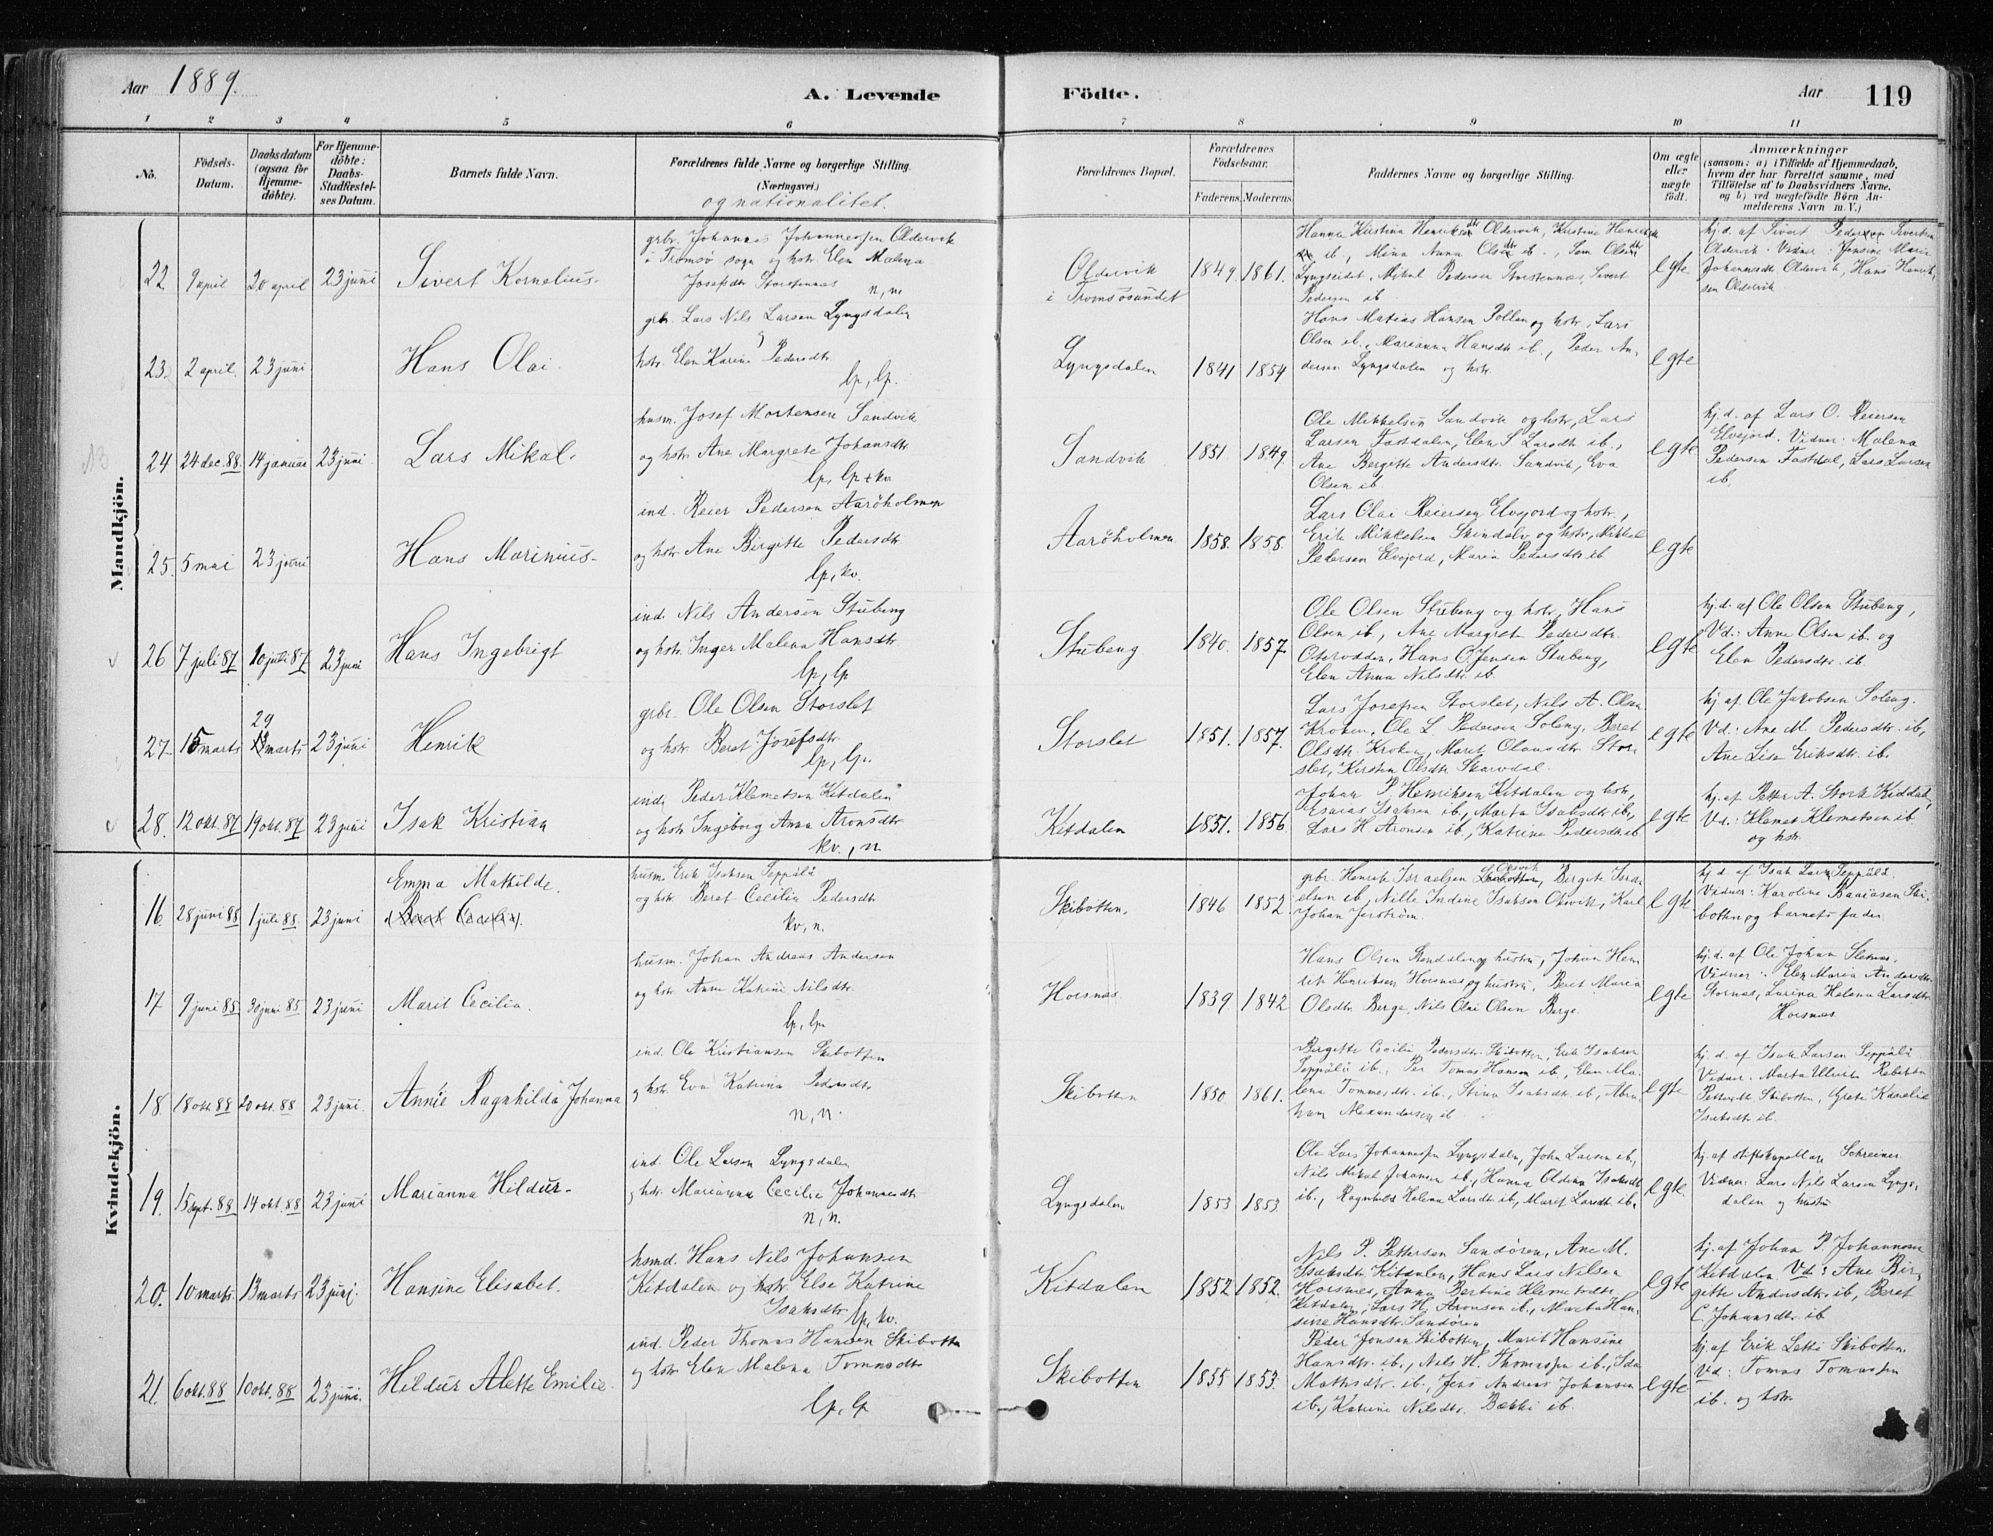 Aar 1889.
A. Levende
Födte.
Aar
119
1 2 3 4 5 6 7 8 9 10 11
No.
Födsels-Datum.
Daabsdatum (ogsaa for Hjemme-döbte).
For Hjemme-döbte: Daabs-Stadfæstel-ses Datum.
Barnets fulde Navn.
Forældrenes fulde Navne og borgerlige Stilling. (Næringsvei.)
og nationalitet.
Forældrenes Bopæl.
Forældrenes Födselsaar.
Faderens. Moderens.
Faddernes Navne og borgerlige Stilling.
Om ægte eller uægte födt.
Anmærkninger
(saasom: a) i Tilfælde af Hjemmedaab,
hvem der har forrettet samme, med
Tilföielse af to Daabsvidners Navne,
og b) ved uægtefödte Börn An-
melderens Navn m. V.)
Mandkjön.
22. 9 april 20 april 23 juni Sivert Kornelius.
grbr. Johannes Johannessen Oldervik
i Tromsö sogn og hstr. Elen Malena
Josefsdtr Storstennes n, n.
Oldervik
i Tromsösundet
1849 1861.
Lyngseidet, Mikal Pedersen Storstennes, Sivert
Pedersen ib
egte
Oldervik. Vidner: Jensine Marie
Johannesdtr Oldervik, Hans Henrik-
sen Oldervik
23. 2 april. 23 juni Hans Olai.
grbr. Lars Nils Larsen Lyngsdalen
hstr. Elen Karine Pedersdtr.
lp, lp.
Lyngsdalen 1841 1854
Hans Matias Hansen Pollen og hstr., Lars
Olsen ib., Marianna Hansdtr ib., Peder An-
dersen Lyngsdalen og hstr.
egte
24. 24 dec. 88 14 januar 23 juni Lars Mikal.
husm. Josef Mortensen Sandvik
og hstr. Ane Margrete Johansdtr
lp, lp+kv.
Sandvik 1851. 1849.
Ole Mikkelsen Sandvik og hstr., Lars
Larsen Fastdalen, Elen S Larsdtr ib.,
Ane Bergitte Andersdtr. Sandvik, Eva
Olsen ib
egte
hj.d. af Lars O. Reiersen
Elvejord. Vidner: Malena
Pedersen Fastdal, Lars Larsen
ib.
25. 5 mai 23 juni Hans Marinius.
ind. Reier Pedersen Aarøholmen
og hstr. Ane Birgitte Pedersdtr.
lp, kv.
Aarøholmen 1858. 1858.
Lars Olai Reiersen Elvejord og hstr.,
Erik Mikkelsen Skindalv og hstr., Mikkel
Pedersen Elvejord, Maria Pedersdtr ib
egte
26 7 juli 87 10 juli 87 23 juni Hans Ingebrigt
ind. Nils Andersen Stubeng
og hstr. Inger Malena Hansdtr.
lp, lp
Stubeng 1840. 1857
Ole Olsen Stubeng og hstr, Hans
Olsen ib., Ane Margrete Pedersdtr.
Oterodden, Hans O. Jensen Stubeng,
Elen Anna Nilsdtr. ib.
egte
hj.d. af Ole Olsen Stubeng,
Vd: Anne Olsen ib. og
Elen Pedersdtr. ib.
27. 15 marts 29 marts 23 juni Henrik
grbr. Ole Olsen Storslet
og hstr. Beret Josefsdtr.
lp, lp.
Storslet 1851. 1857.
Lars Josefsen Storslet, Nils A. Olsen
Kroken, Ole L Pedersen Soleng, Beret
Olsdtr. Kroken, Maret Olausdtr. Stor-
slet, Kirsten Olsdtr Skarvdal.
egte
hj. af Ole Jakobsen Soleng.
Vd: Ane M. Pedersdtr. ib,
Ane Lise Eriksdtr. ib.
28. 12 okt. 87 19 okt. 87 23 juni Isak Kristian
ind. Peder Klemetsen Kitdalen
og hstr. Ingeborg Anna Aronsdtr
kv., n.
Kitdalen 1851. 1856
Johan P. Henriksen Kitdalen og hstr,
Esaias Isaksen ib., Marta Isaksdtr ib.,
Lars H. Aronsen ib., Katrine Pedersdtr ib
egte
hj. af Petter A. Stork Kitdal,
Vd.: Klemet Klemetsen ib
og hstr.
Kvindekjön.
16. 28 juni 88 1 juli 88 23 juni Emma Mathilde.
(Beret Cecilia).
husm. Erik Isaksen Seppälä
og hstr. Beret Cecilia Pedersdtr
kv, n.
Skibotten. 1846 1852
grbr. Henrik Israelsen Olsvik, Bergite Isra-
elsen ib, Nille Indine Isaksen Olsvik, Karl
Johan Jerström.
egte
hj.d. af Isak Larsen Seppälä.
Vidner: Karoline Baaiasen Ski-
botten og barnets fader
17 9 juni 85 30 juni 85 23 juni Marit Cecilia.
husm. Johan Andreas Andersen
og hstr. Anne Katrine Nilsdtr.
lp, lp.
Horsnes. 1839 1842
Hans Olsen og hustru, Johan Hen-
rik Henriksen Horsnes og hustru, Beret Maria
Olsdtr Berge, Nils Olai Olsen Berge.
egte
hj.d. af Ole Johan Sletnes.
Vidner: Elen Maria Andersdtr.
Stornes, Larina Helena Larsdtr.
Horsnes
18. 18 okt. 88 20 okt. 88 23 juni. Annie Ragnhilda Johanna
ind. Ole Kristiansen Skibotten
og hstr. Eva Katrina Pedersdtr
n, n.
Skibotten 1850 1861.
Bergitte Cecilie Pedersdtr. Skibotten, Erik Isaksen
Seppälä ib., Per Tomas Hansen ib., Elen Ma-
lena Tommesdtr. ib., Stina Isaksdtr. ib., Abra-
ham Alexandersen ib
egte
hj.d. af Isak Larsen Seppälä
Vidner: Marta Ulrika Rebekka
Pettersdtr Skibotten, Grete Kornelie
Isaksdtr ib.
19. 15 sept. 88 14 okt. 88 23 juni Marianna Hildur.
ind. Ole Larsen Lyngsdalen
og hstr. Marianna Cecilie Johannesdtr.
n, n.
Lyngsdalen 1853 1853
Ole Lars Johannessen Lyngsdalen, John Larsen ib.,
Nils Mikal Johansen ib., Hanna Oldina Isaksdtr
ib., Ragnhild Helena Larsdtr. ib., Marit Larsdtr. ib.
egte.
hj. af stiftskapellan Schreiner
Vidner: Lars Nils Larsen Lyngs-
dalen og hustru
20. 10 marts. 13 marts 23 juni. Hansine Elisabet.
hsmd. Hans Nils Johansen
Kitdalen og hstr Else Katrine
Isaksdtr. lp, kv.
Kitdalen 1852 1852.
Nils P. Pettersen Sandören, Ane M.
Isaksdtr Kitdalen, Hans Lars Nilsen
Horsnes, Anna Bertine Klemetsdtr
Kitdalen, Lars H. Aronsen ib., Marta Han-
sine Hansdtr. Sandören
egte
hj. af Johan P. Johannesen
Kitdalen. Vd: Ane Bir-
gette Andersdtr. ib, Beret
C. Johansdtr. ib
21. 6 okt. 88 10 okt. 88 23 juni. Hildur Alette Emilie.
ind. Peder Thomas Hansen Skibotten
og hstr. Elen Malena Tommesdtr
lp, lp
Skibotten 1855 1853.
Peder Jonsen Skibotten, Marit Hansine
Hansdtr. ib., Nils H. Thomassen ib., Ida
Mathisdtr. ib., Jens Andreas Johansen
ib., Katrine Nilsdtr. Bakki ib.
egte
hj. af Erik Letti Skibotten.
Vd: Tomas Tomassen
ib. og hstr.